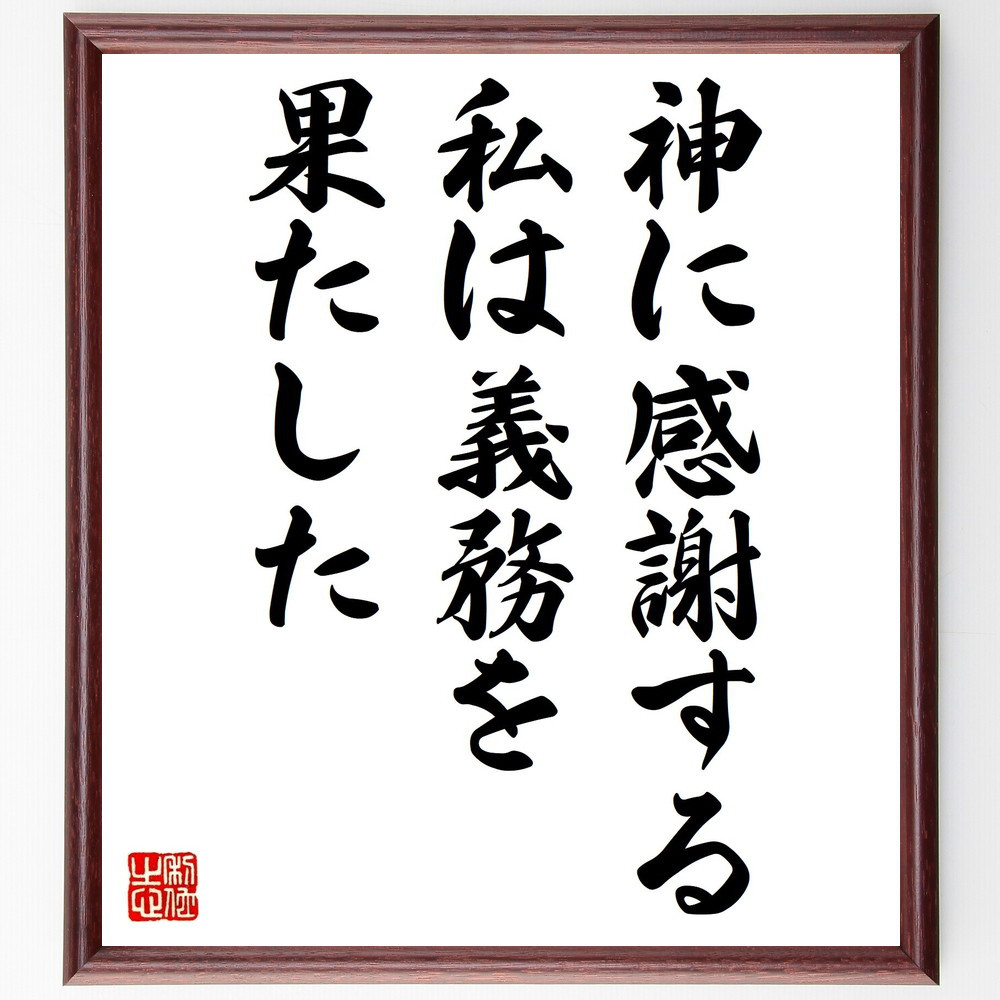 神に感謝する
私は義務を
果たした